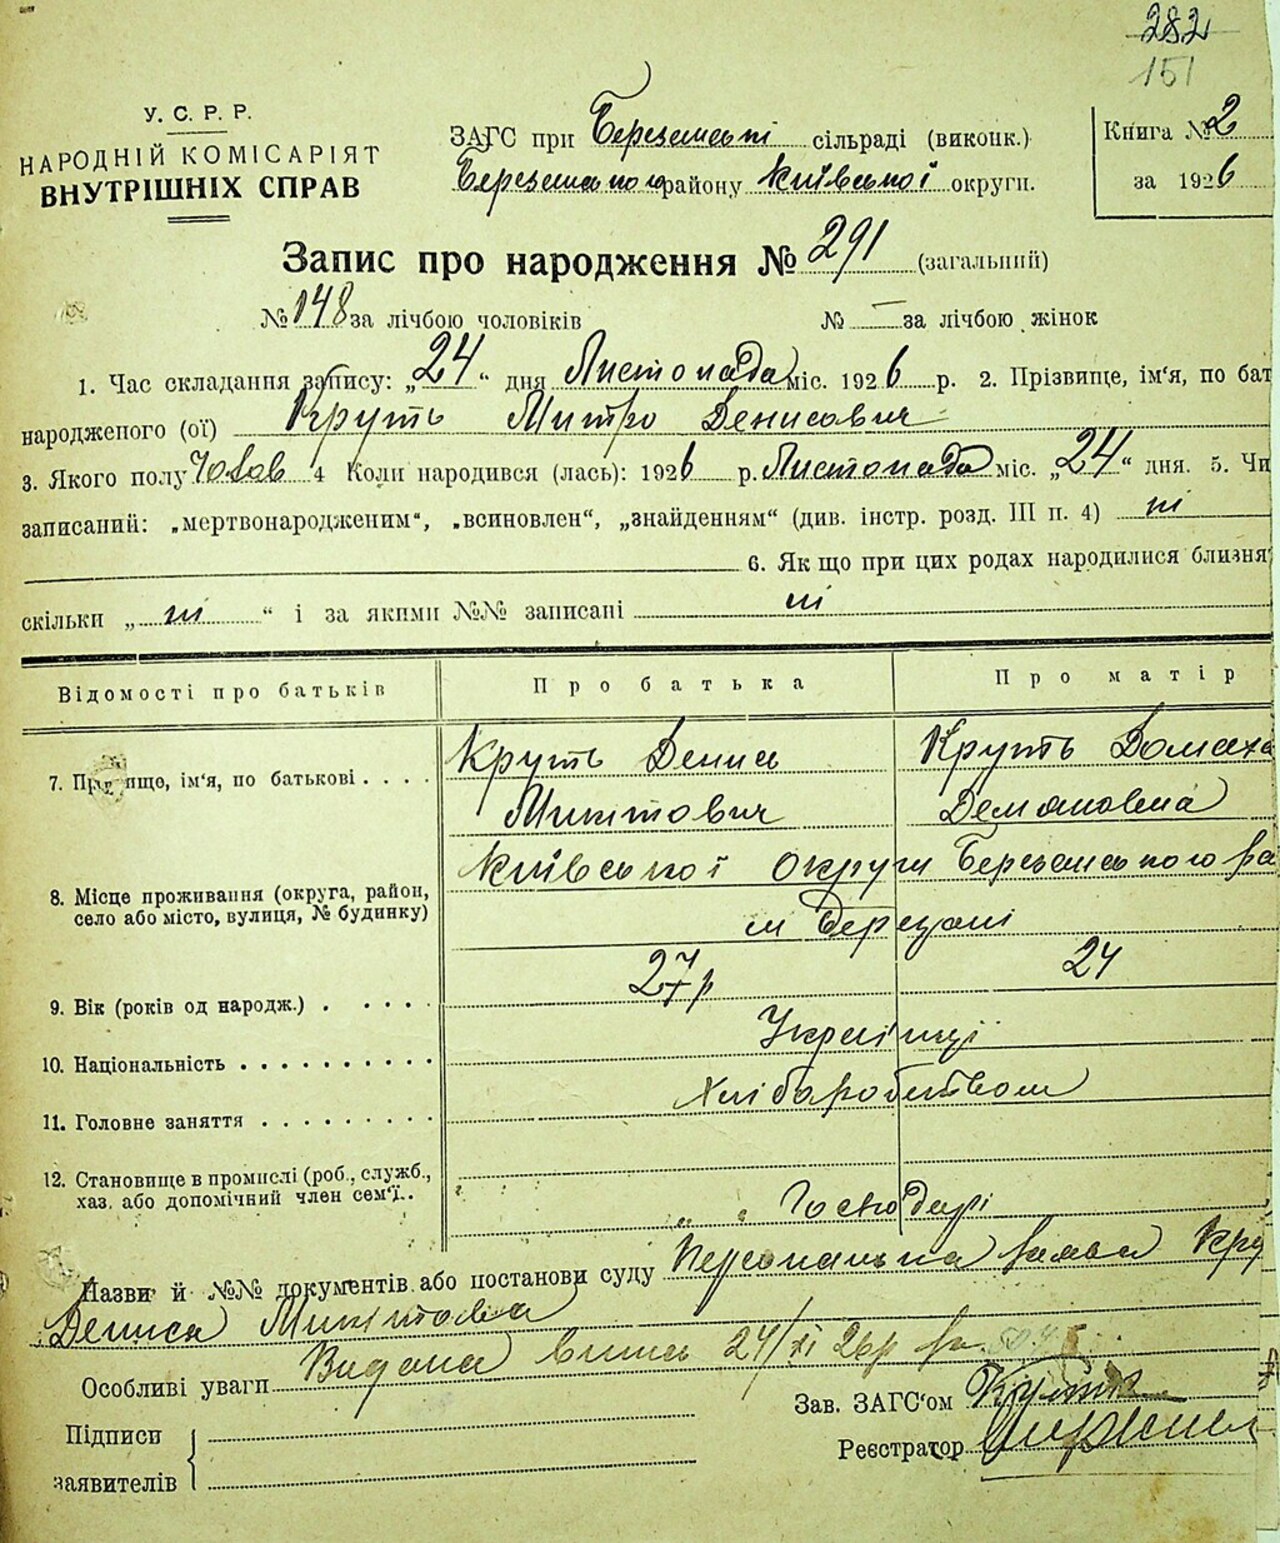 282
151
У. С. Р. Р.
НАРОДНІЙ КОМІСАРІЯТ
ВНУТРІШНІХ СПРАВ
ЗАГС при Березанській сільраді (виконк.)
Березанського району Київської округи.
Книга № 2
за 1926
Запис про народження № 291 (загальний)
№ 148 за лічбою чоловіків № — за лічбою жінок
1. Час складання запису: „24“ дня Листопада міс. 1926 р. 2. Прізвище, ім‘я, по бат
народженого (ої) Круть Митро Денисович
3. Якого полу Чолов 4 Коли народився (лась): 1926 р. Листопада міс. „24“ дня. 5. Чи
записаний: „мертвонародженим“, „всиновлен“, „знайденням“ (див. інстр. розд. III п. 4) ні
6. Як що при цих родах народилися близня
скільки „ ні “ і за якими №№ записані ні
Відомості про батьків Про батька Про матір
7. Прі ище, ім‘я, по батькові . . . . Круть Денись Круть Домаха
Микитович Демяновна
8. Місце проживання (округа, район, Київської Округи Березанського ра
село або місто, вулиця, № будинку) м Березані
9. Вік (років од народж.) . . . . . 27 р 24
10. Національність . . . . . . . . . . Українці
11. Головне заняття . . . . . . . . . Хліборобством
12. Становище в промислі (роб., служб., хаз. або допомічний член сем‘ї. . Господарі
Назви й №№ документів або постанови суду Персональна заява Кру
Дениса Микитовича
Особливі уваги Видана випись 24/XI 26р
Зав. ЗАГС‘ом
Підписи
заявителів
Реєстратор